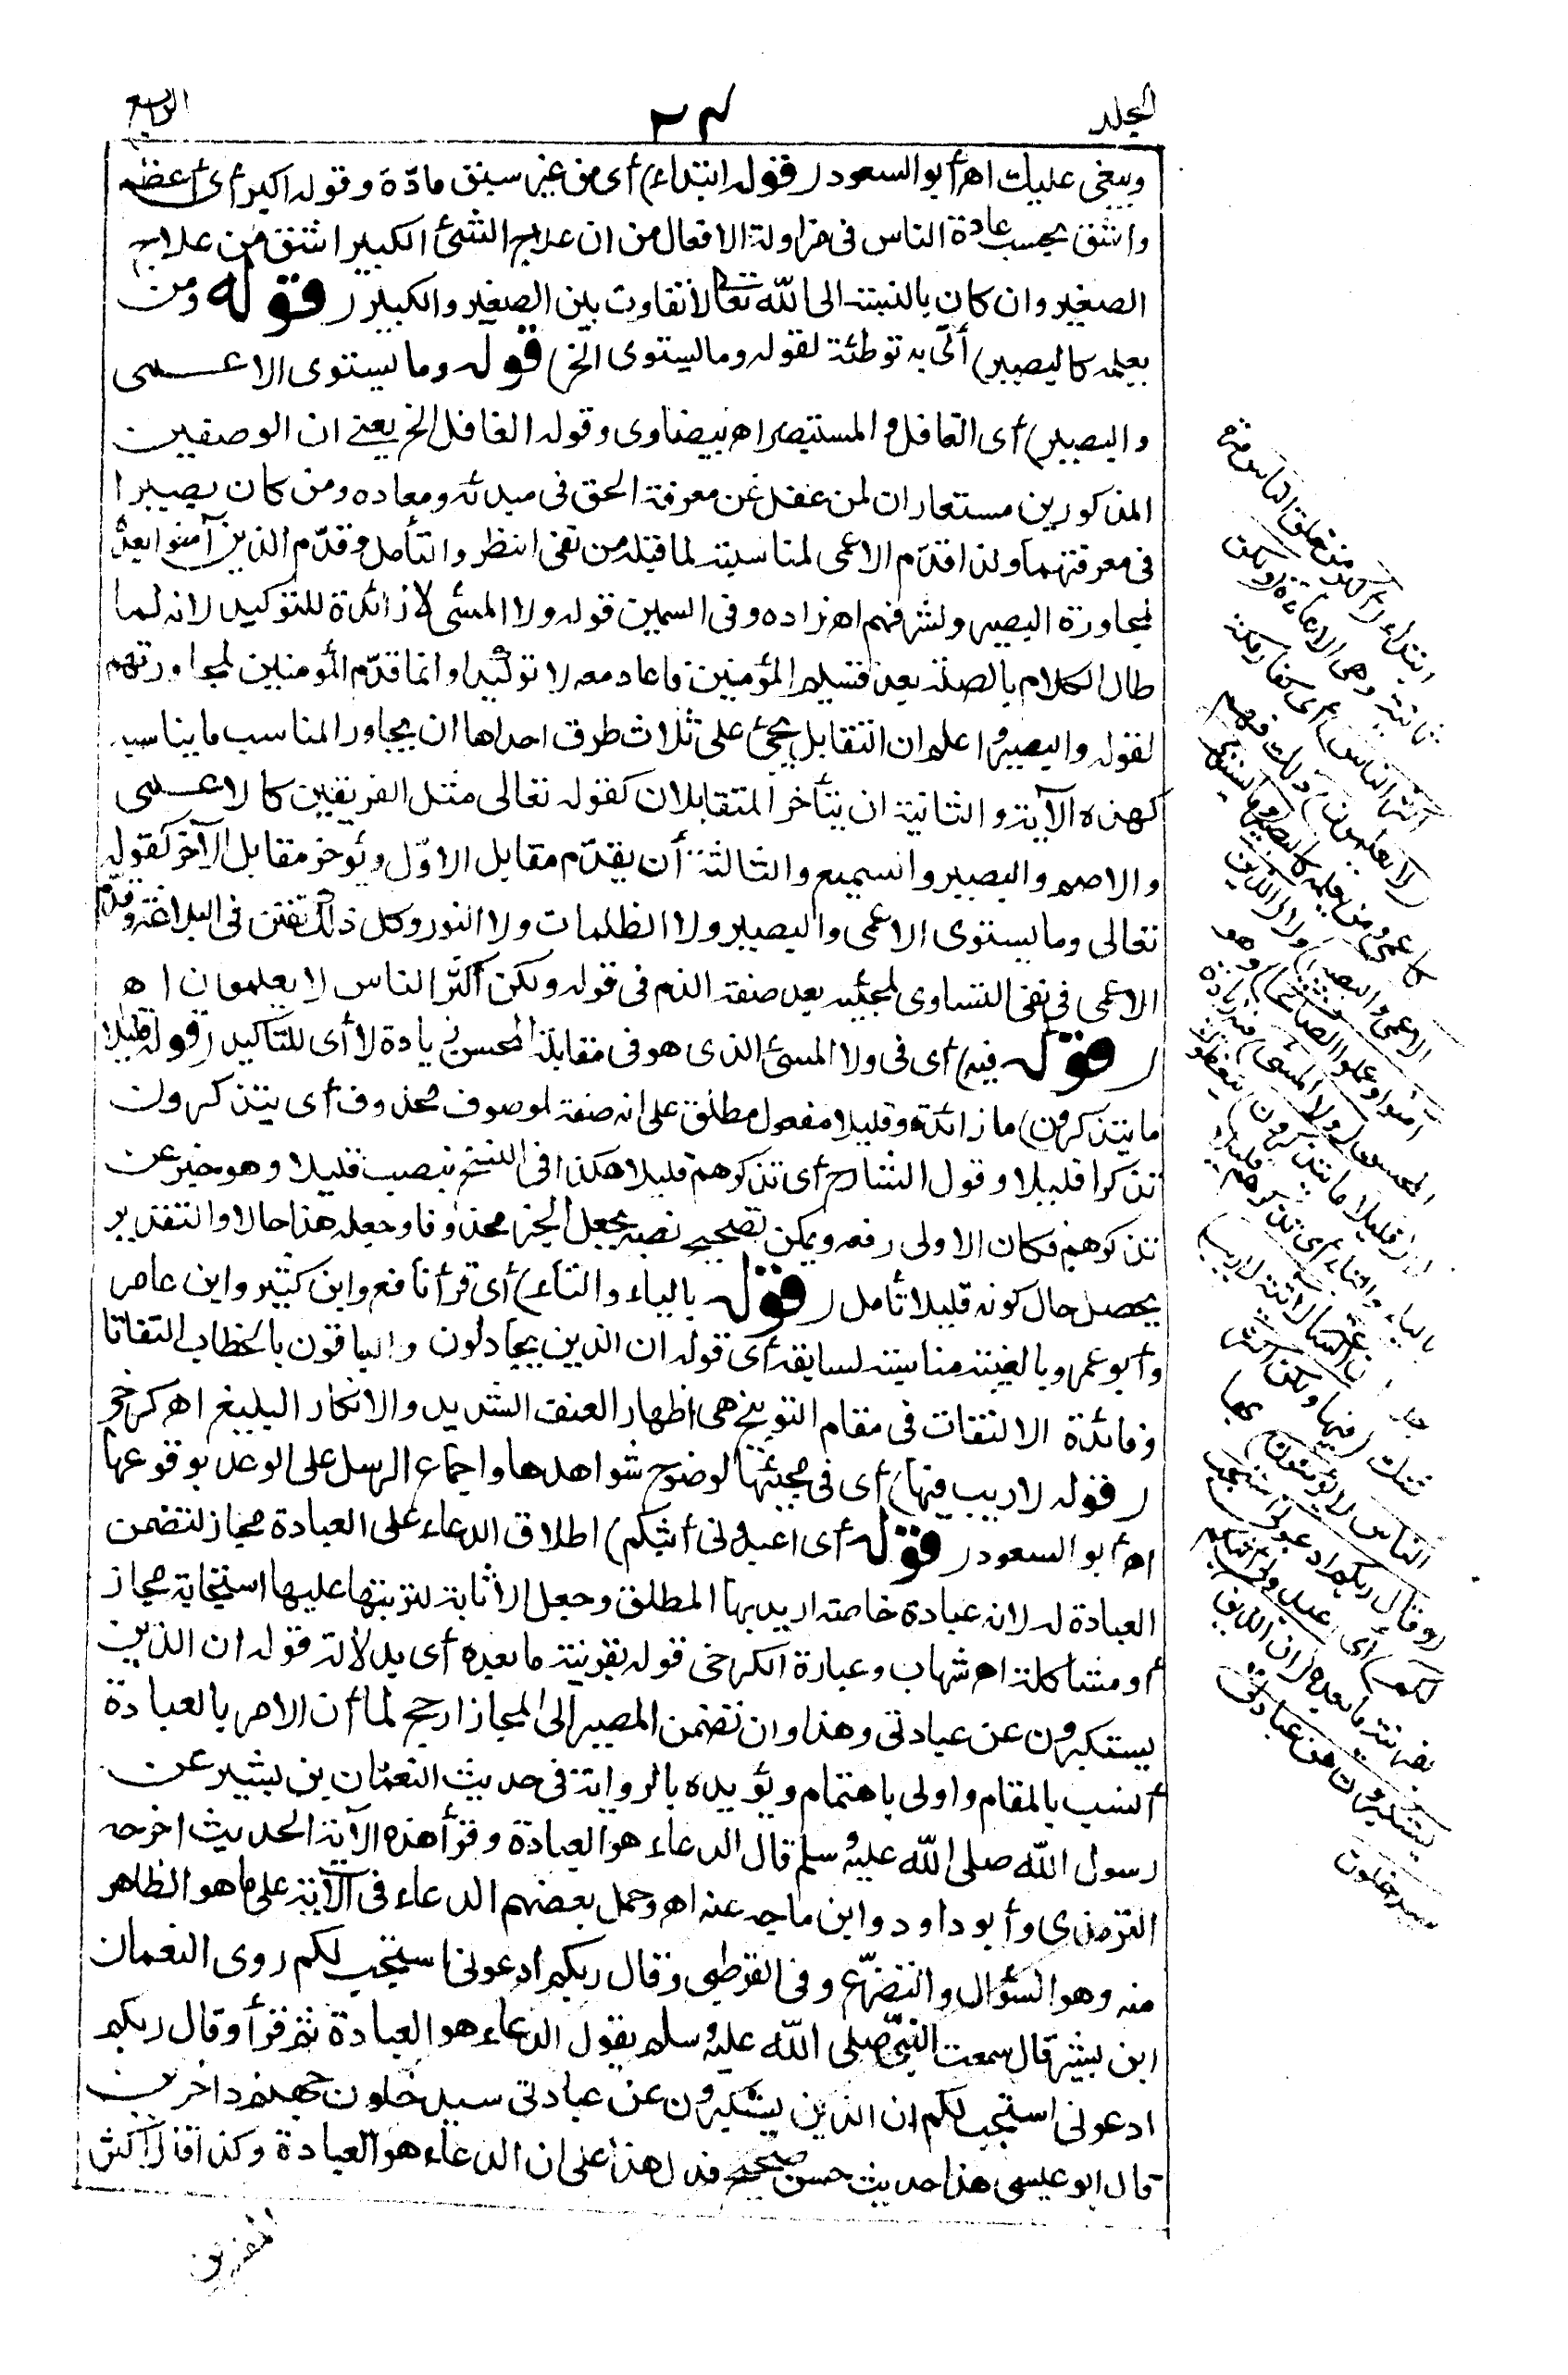 المجلد
٢٤
الرابع
ويبغى عليك اهـ أبو السعود (قوله ابتداء) أى من غير سبق مادّة وقوله اكبر أى أعظم
واشق بحسب عادة الناس فى مزاولة الافعال من ان علاج الشئ الكبير اشق من علاج
الصغير وان كان بالنسبة الى الله تعالى لا تفاوت بين الصغير والكبير (قوله ومن
بعلمه كالبصير) أتى به توطئة لقوله وما ليستوى الخ (قوله وما يستوى الاعمى
والبصير) أى الغافل والمستبصر اهـ بيضاوى وقوله الغافل الخ يعنى ان الوصفين
المذكورين مستعاران لمن غفل عن معرفة الحق فى مبدئه ومعاده ومن كان بصيرا
فى معرفتهما ولذا قدّم الاعمى لمناسبته لما قبله من نفى النظر والتأمل وقدّم الذين آمنوا بعدُ
لمجاورة البصير ولشرفهم اهـ زاده وفى السمين قوله ولا المسئ لا زائدة للتوكيد لانه لما
طال الكلام بالصلة بعد قسيم المؤمنين فاعاد معه لا توكيدا وانما قدّم المؤمنين لمجاورتهم
لقوله والبصير واعلم ان التقابل يجئ على ثلاث طرق احداها ان يجاور المناسب ما يناسبه
كهذه الآية والثانية ان يتأخر المتقابلان كقوله تعالى مثل الفريقين كالاعمى
والاصم والبصير والسميع والثالثة أن يقدّم مقابل الاوّل ويؤخر مقابل الآخر كقوله
تعالى وما يستوى الاعمى والبصير ولا الظلمات ولا النور وكل ذلك تفنن فى البلاغة وقدّم
الاعمى فى نفى التساوى لمجيئه بعد صفة الذم فى قوله ولكن أكثر الناس لا يعلمون اهـ
(قوله فيه) أى فى ولا المسئ الذى هو فى مقابلة المحسن زيادة لا أى للتأكيد (قوله قليلا
ما يتذكرون) ما زائدة وقليلا مفعول مطلق على انه صفة لموصوف محذوف أى يتذكرون
تذكرا قليلا وقول الشارح أى تذكرهم قليلا هكذا فى النسخ بنصب قليلا وهو خبر عن
تذكرهم فكان الاولى رفعه ويمكن تصحيح نصبه بجعل الخبر محذوفا وجعله هذا حالا والتقدير
يحصل حال كونه قليلا تأمل (قوله بالياء والتاء) أى قرأ نافع وابن كثير وابن عامر
وأبو عمرو بالغيبة مناسبة لسابقه أى قوله ان الذين يجادلون والباقون بالخطاب التفاتا
وفائدة الالتفات فى مقام التوبيخ هى اظهار العنف الشديد والانكار البليغ اهـ كرخى
(قوله لا ريب فيها) أى فى مجيئها لوضوح شواهدها واجماع الرسل على الوعد بوقوعها
اهـ أبو السعود (قوله أى اعبدونى أثبكم) اطلاق الدعاء على العبادة مجاز لتضمن
العبادة له لانه عبادة خاصة اريد بها المطلق وجعل الاثابة لترتبها عليها استجابة مجاز
أو مشاكلة اهـ شهاب وعبارة الكرخى قوله بقرينة ما بعده أى بدلالة قوله ان الذين
يستكبرون عن عبادتى وهذا وان تضمن المصير الى المجاز ارجح لما أن الامر بالعبادة
أنسب بالمقام واولى باهتمام ويؤيده بالرواية فى حديث النعمان بن بشير عن
رسول الله صلى الله عليه وسلم قال الدعاء هو العبادة وقرأ هذه الآية الحديث اخرجه
الترمذى وأبو داود وابن ماجه عنه اهـ وحمل بعضهم الدعاء فى الآية على ما هو الظاهر
منه وهو السؤال والتضرّع وفى القرطبى وقال ربكم ادعونى استجب لكم روى النعمان
ابن بشير قال سمعت النبىّ صلى الله عليه وسلم يقول الدعاء هو العبادة ثم قرأ وقال ربكم
ادعونى استجب لكم ان الذين يستكبرون عن عبادتى سيدخلون جهنم داخرين
قال ابو عيسى هذا حديث حسن صحيح فدل هذا على ان الدعاء هو العبادة وكذا قال اكثر
المفسرين
ابتداء (ولكن
ثانية وهى الاعادة (ولكن
اكثر الناس) أى كفار مكة
(لا يعلمون) ذلك فهم
كالاعمى ومن يعلمه كالبصير (وما يستوى
الاعمى والبصير) ولا (الذين
آمنوا وعملوا الصالحات) وهو
المحسن (ولا المسئ) فيه زيادة
لا (قليلا ما يتذكرون) يتعظون
بالياء والتاء أى تذكرهم قليلا
ان الساعة لآتية لا ريب
شك (فيها ولكن اكثر
الناس لا يؤمنون) بها
(وقال ربكم ادعونى استجب
لكم) أى اعبدونى أثبكم
بقرينة ما بعده (ان الذين
يستكبرون عن عبادتى
سيدخلون